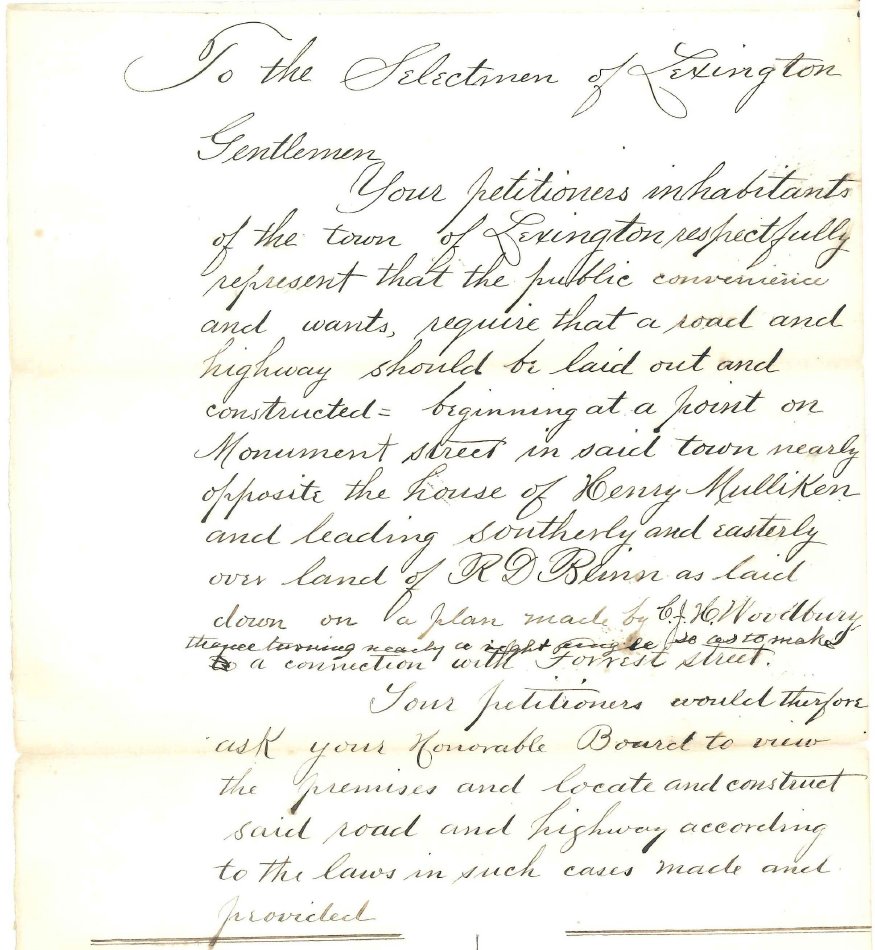 To the Selectmen of Lexington
Gentlemen
Your petitioners inhabitants
of the town of Lexington respectfully
represent that the public convenience
and wants, require that a road and
highway should be laid out and
constructed= beginning at a point on
Monument street in said town nearly
opposite the house of Henry Mulliken
and leading southerly and easterly
over land of R D Blinn as laid
down on a plan made by C. J. H. Woodbury
thence turning nearly a right angle so as to make
a connection with Forrest street.
Your petitioners would therfore
ask your Honorable Board to view
the premises and locate and construct
said road and highway according
to the laws in such cases made and
provided